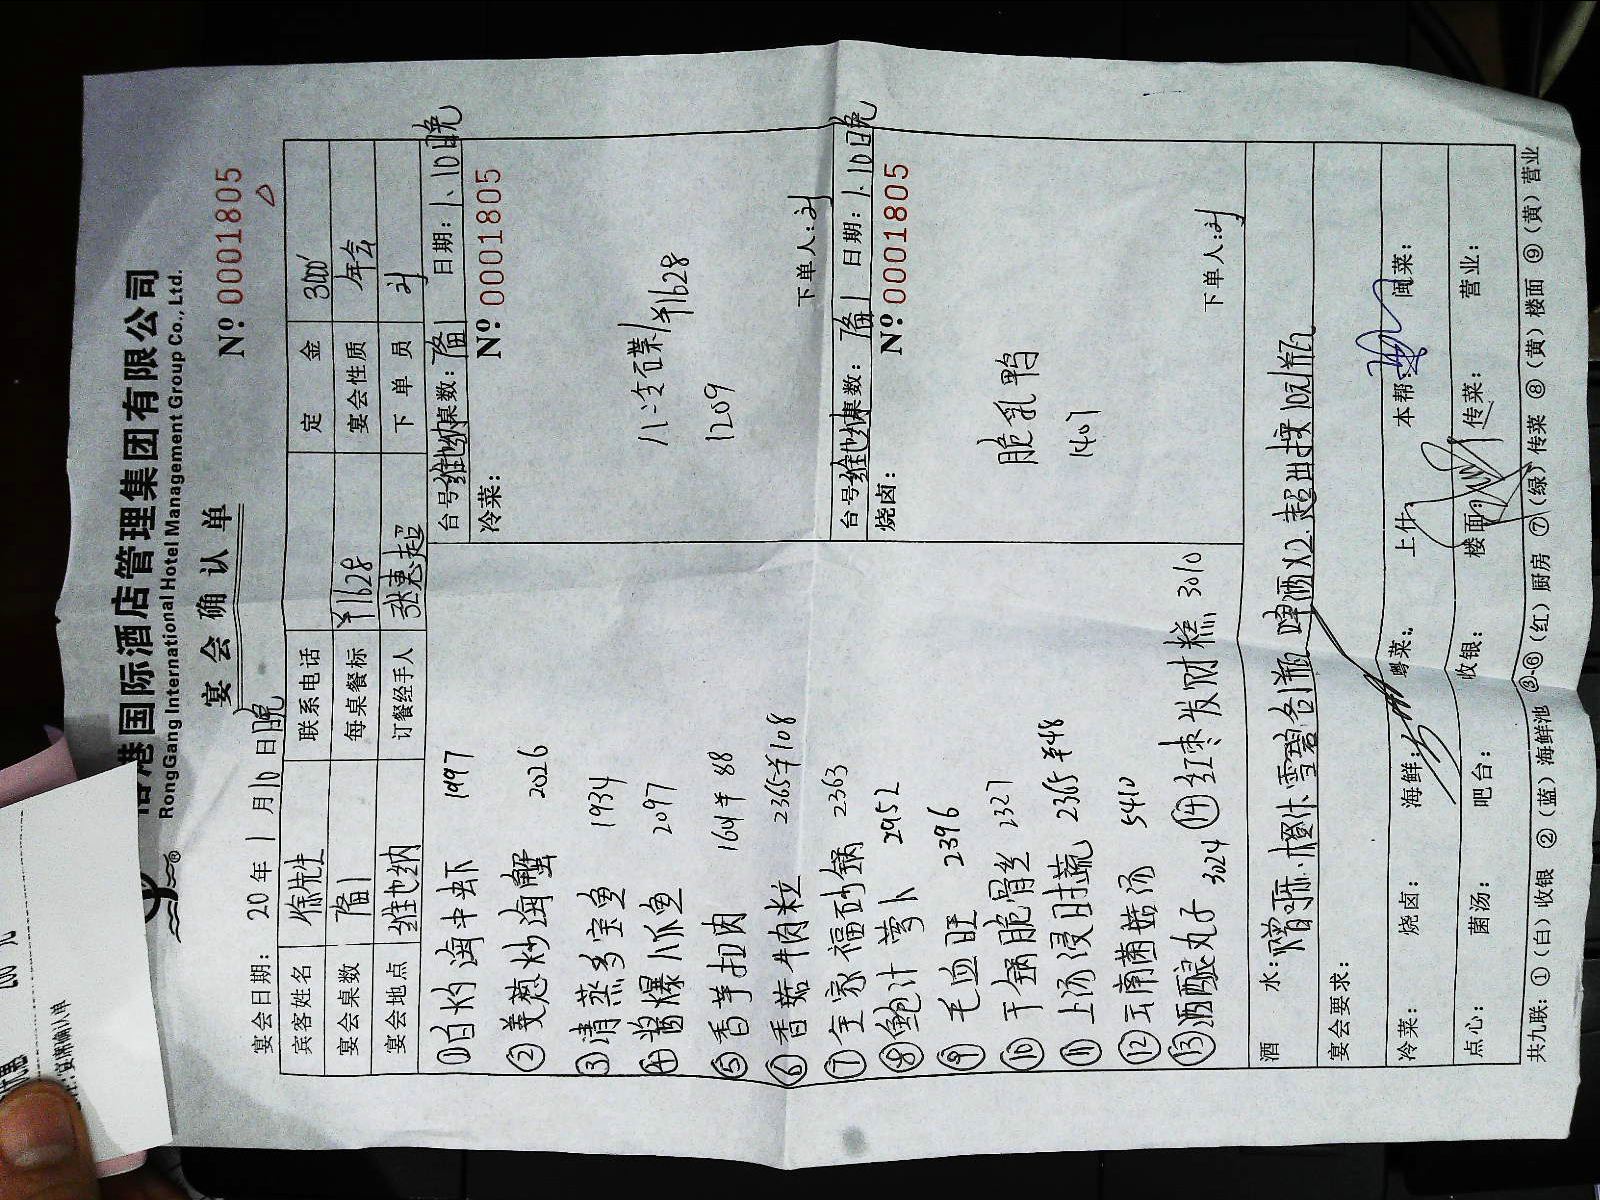 港国际酒店管理集团有限公司
RongGang International Hotel Management Group Co., Ltd.
宴会确认单
№:0001805
宴会日期: 20 年 1 月 10 日晚
宾客姓名 徐先生 联系电话 定金 3000
宴会桌数 1 每桌餐标 ¥1628 宴会性质 年会
宴会地点 维也纳 订餐经手人 张惠超 下单员 刘
台号维也纳桌数: 1 日期: 1.10日晚
①白灼海中虾 1997
②姜葱炒海蟹 2026
③清蒸多宝鱼 1934
④酱爆八爪鱼 2097
⑤香芋扣肉 164半 88
⑥香菇牛肉粒 2365半108
⑦全家福砂锅 2363
⑧鲍汁萝卜 2952
⑨毛血旺 2396
⑩干锅脆骨丝 2327
⑪上汤浸时蔬 2365半48
⑫云南菌菇汤 5410
⑬酒酿丸子 3024 ⑭红枣发财糕 3010
冷菜: №:0001805
八冷碟/¥1628
1209
下单人:刘
台号维也纳桌数: 1 日期: 1.10日晚
烧卤: №:0001805
脆乳鸭
1407
下单人:刘
酒水:赠 橙汁.雪碧各1瓶 啤酒X2.超出按10元/瓶
宴会要求:
冷菜: 烧卤: 海鲜: 粤菜: 上什: 本帮: 闽菜:
点心: 菌汤: 吧台: 收银: 楼面: 传菜: 营业:
共九联: ①(白)收银 ②(蓝)海鲜池 ③-⑥(红)厨房 ⑦(绿)传菜 ⑧(黄)楼面 ⑨(黄)营业